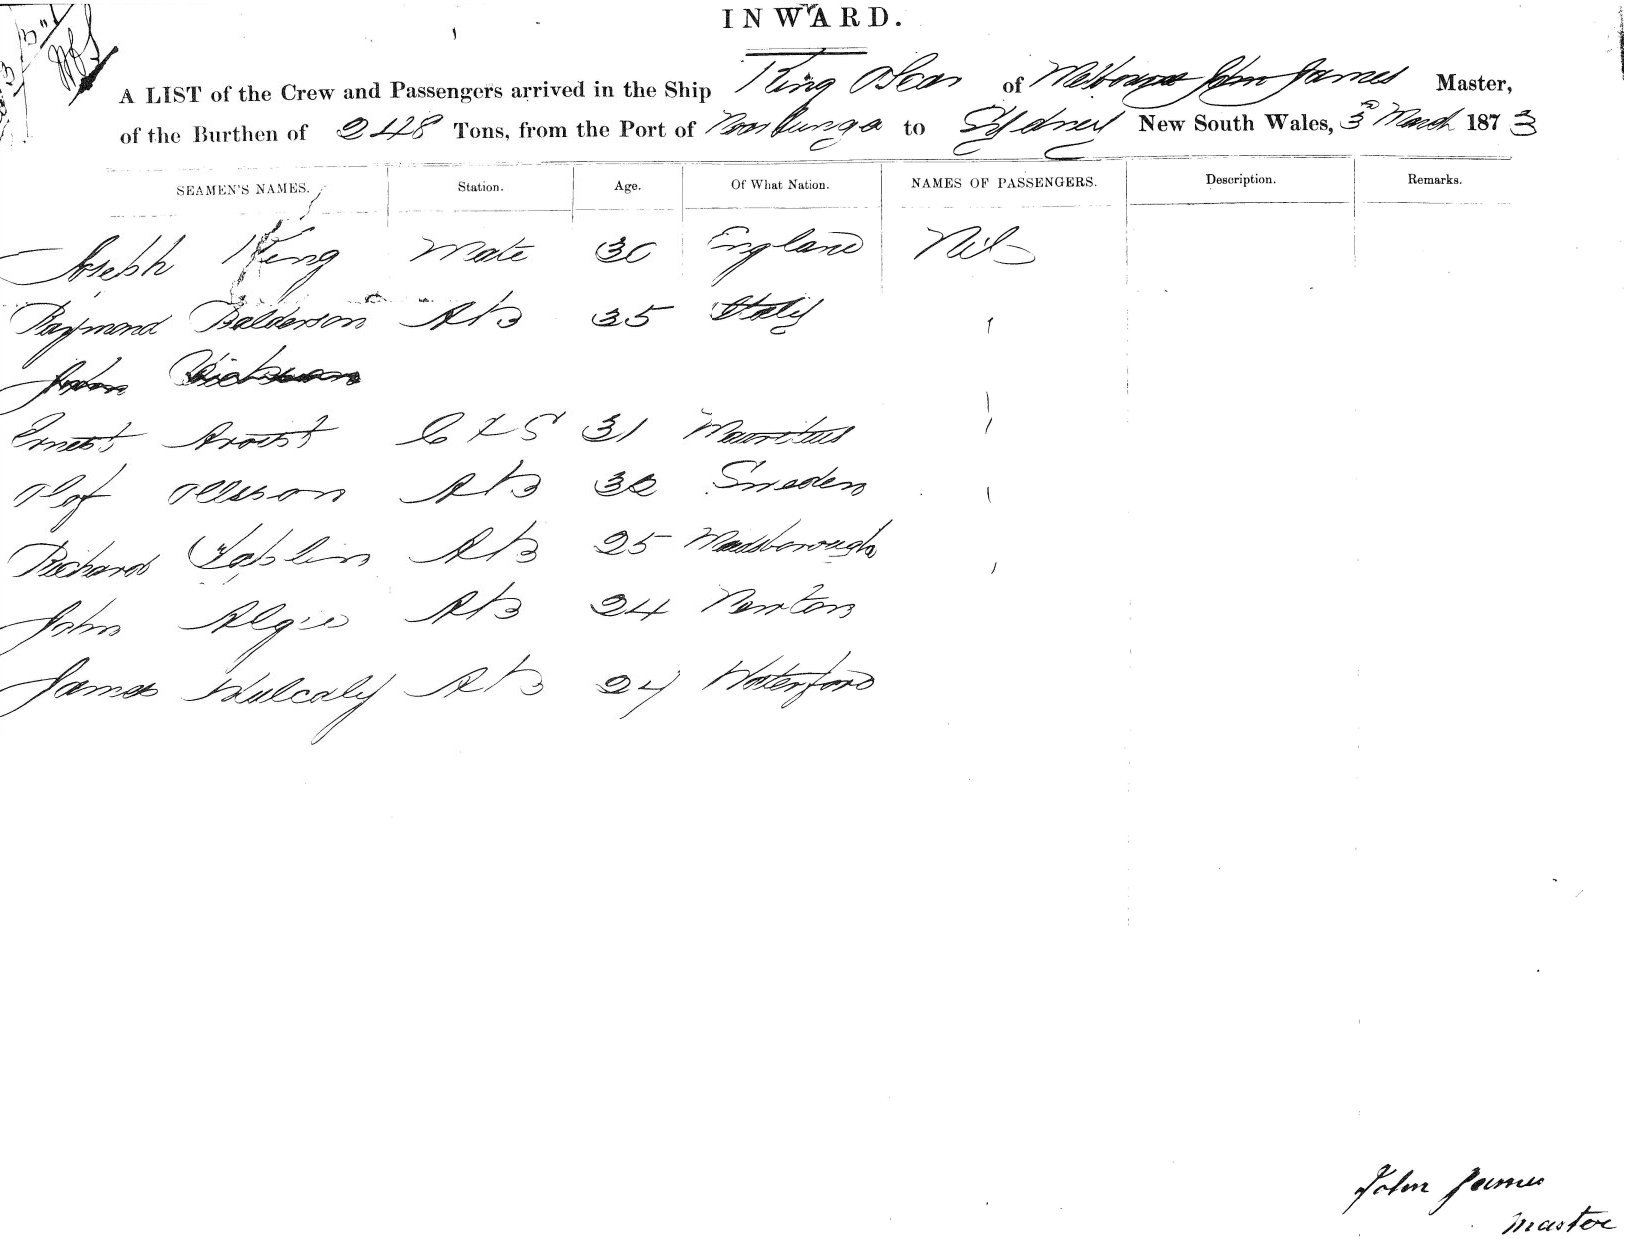 INWARD.
A LIST of the Crew and Passengers arrived in the Ship King Oscar of Melbourne John James Master,
of the Burthen of 248 Tons, from the Port of to Sydney New South Wales, 3rd March 1873
SEAMEN'S NAMES. Station. Age. Of What Nation. NAMES OF PASSENGERS. Description. Remarks.
Joseph King Mate 30 England Nil
Raymond Balderson AB 35 Italy
John
Ernest C & S 31 Mauritius
Olof Ollsson AB 32 Sweden
Richard AB 25
John Algie AB 24 Newton
James Mulcahy AB 24 Waterford
John James
Master